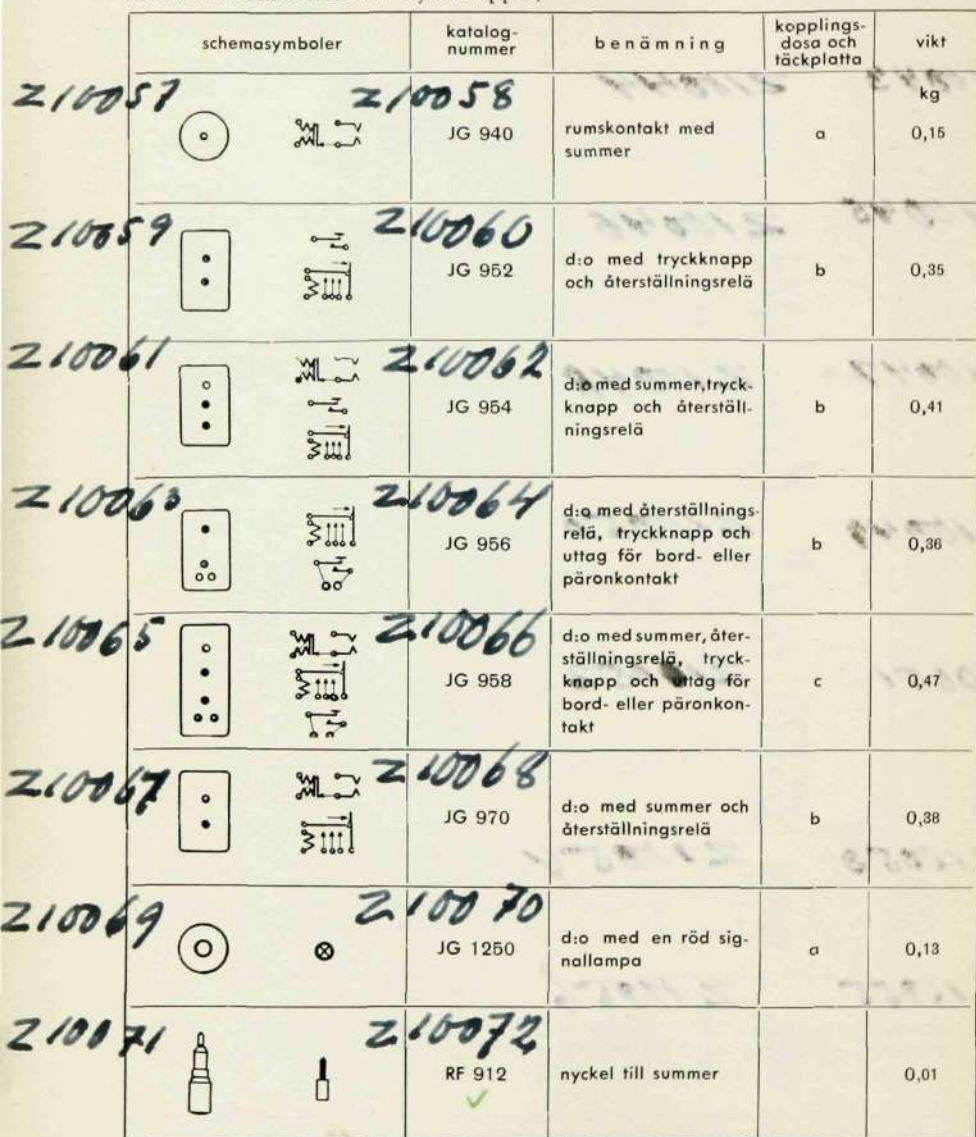 schemasymboler
katalog-
nummer
benämning
kopplings-
dosa och
täckplatta
vikt
kg
Z10057
Z10058
JG 940
rumskontakt med
summer
a
0,15
Z10059
Z10060
JG 952
d:o med tryckknapp
och återställningsrelä
b
0,35
Z10061
Z10062
JG 954
d:o med summer, tryck-
knapp och återställ-
ningsrelä
b
0,41
Z10063
Z10064
JG 956
d:o med återställnings-
relä, tryckknapp och
uttag för bord- eller
päronkontakt
b
0,36
Z10065
Z10066
JG 958
d:o med summer, åter-
ställningsrelä, tryck-
knapp och uttag för
bord- eller päronkon-
takt
c
0,47
Z10067
Z10068
JG 970
d:o med summer och
återställningsrelä
b
0,38
Z10069
Z10070
JG 1250
d:o med en röd sig-
nallampa
a
0,13
Z10071
Z10072
RF 912
nyckel till summer
0,01